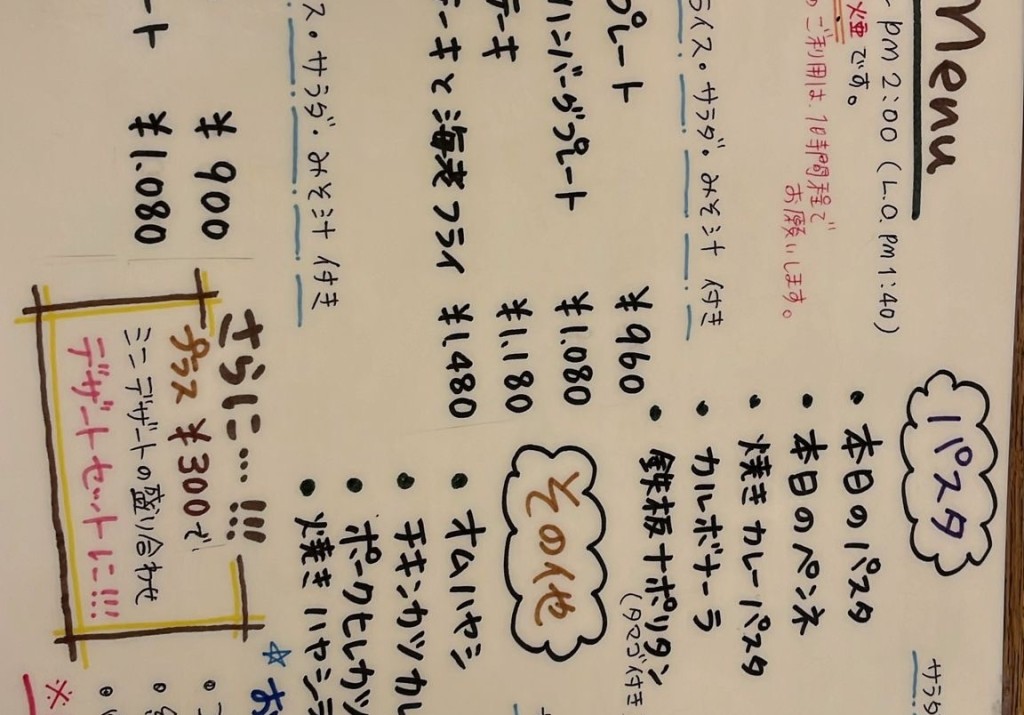 Menu
pm 2:00 (L.O. pm 1:40)
煙です。
のご利用は、1時間程で
お願いします。
ライス・サラダ・みそ汁 付き
プレート ¥960
ハンバーグプレート ¥1.080
テーキ ¥1.180
テーキと海老フライ ¥1.480
ス・サラダ・みそ汁 付き
¥900
ート ¥1.080
パスタ
サラダ
• 本日のパスタ
• 本日のペンネ
• 焼きカレーパスタ
• カルボナーラ
• 鉄板ナポリタン
(タマゴ付き
その他
• オムハヤシ
• チキンカツカレ
• ポークヒレカツ
• 焼きハヤシラ
さらに…!!!
プラス ¥300で
ミニデザートの盛り合わせ
デザートセットに!!!
☆お
※